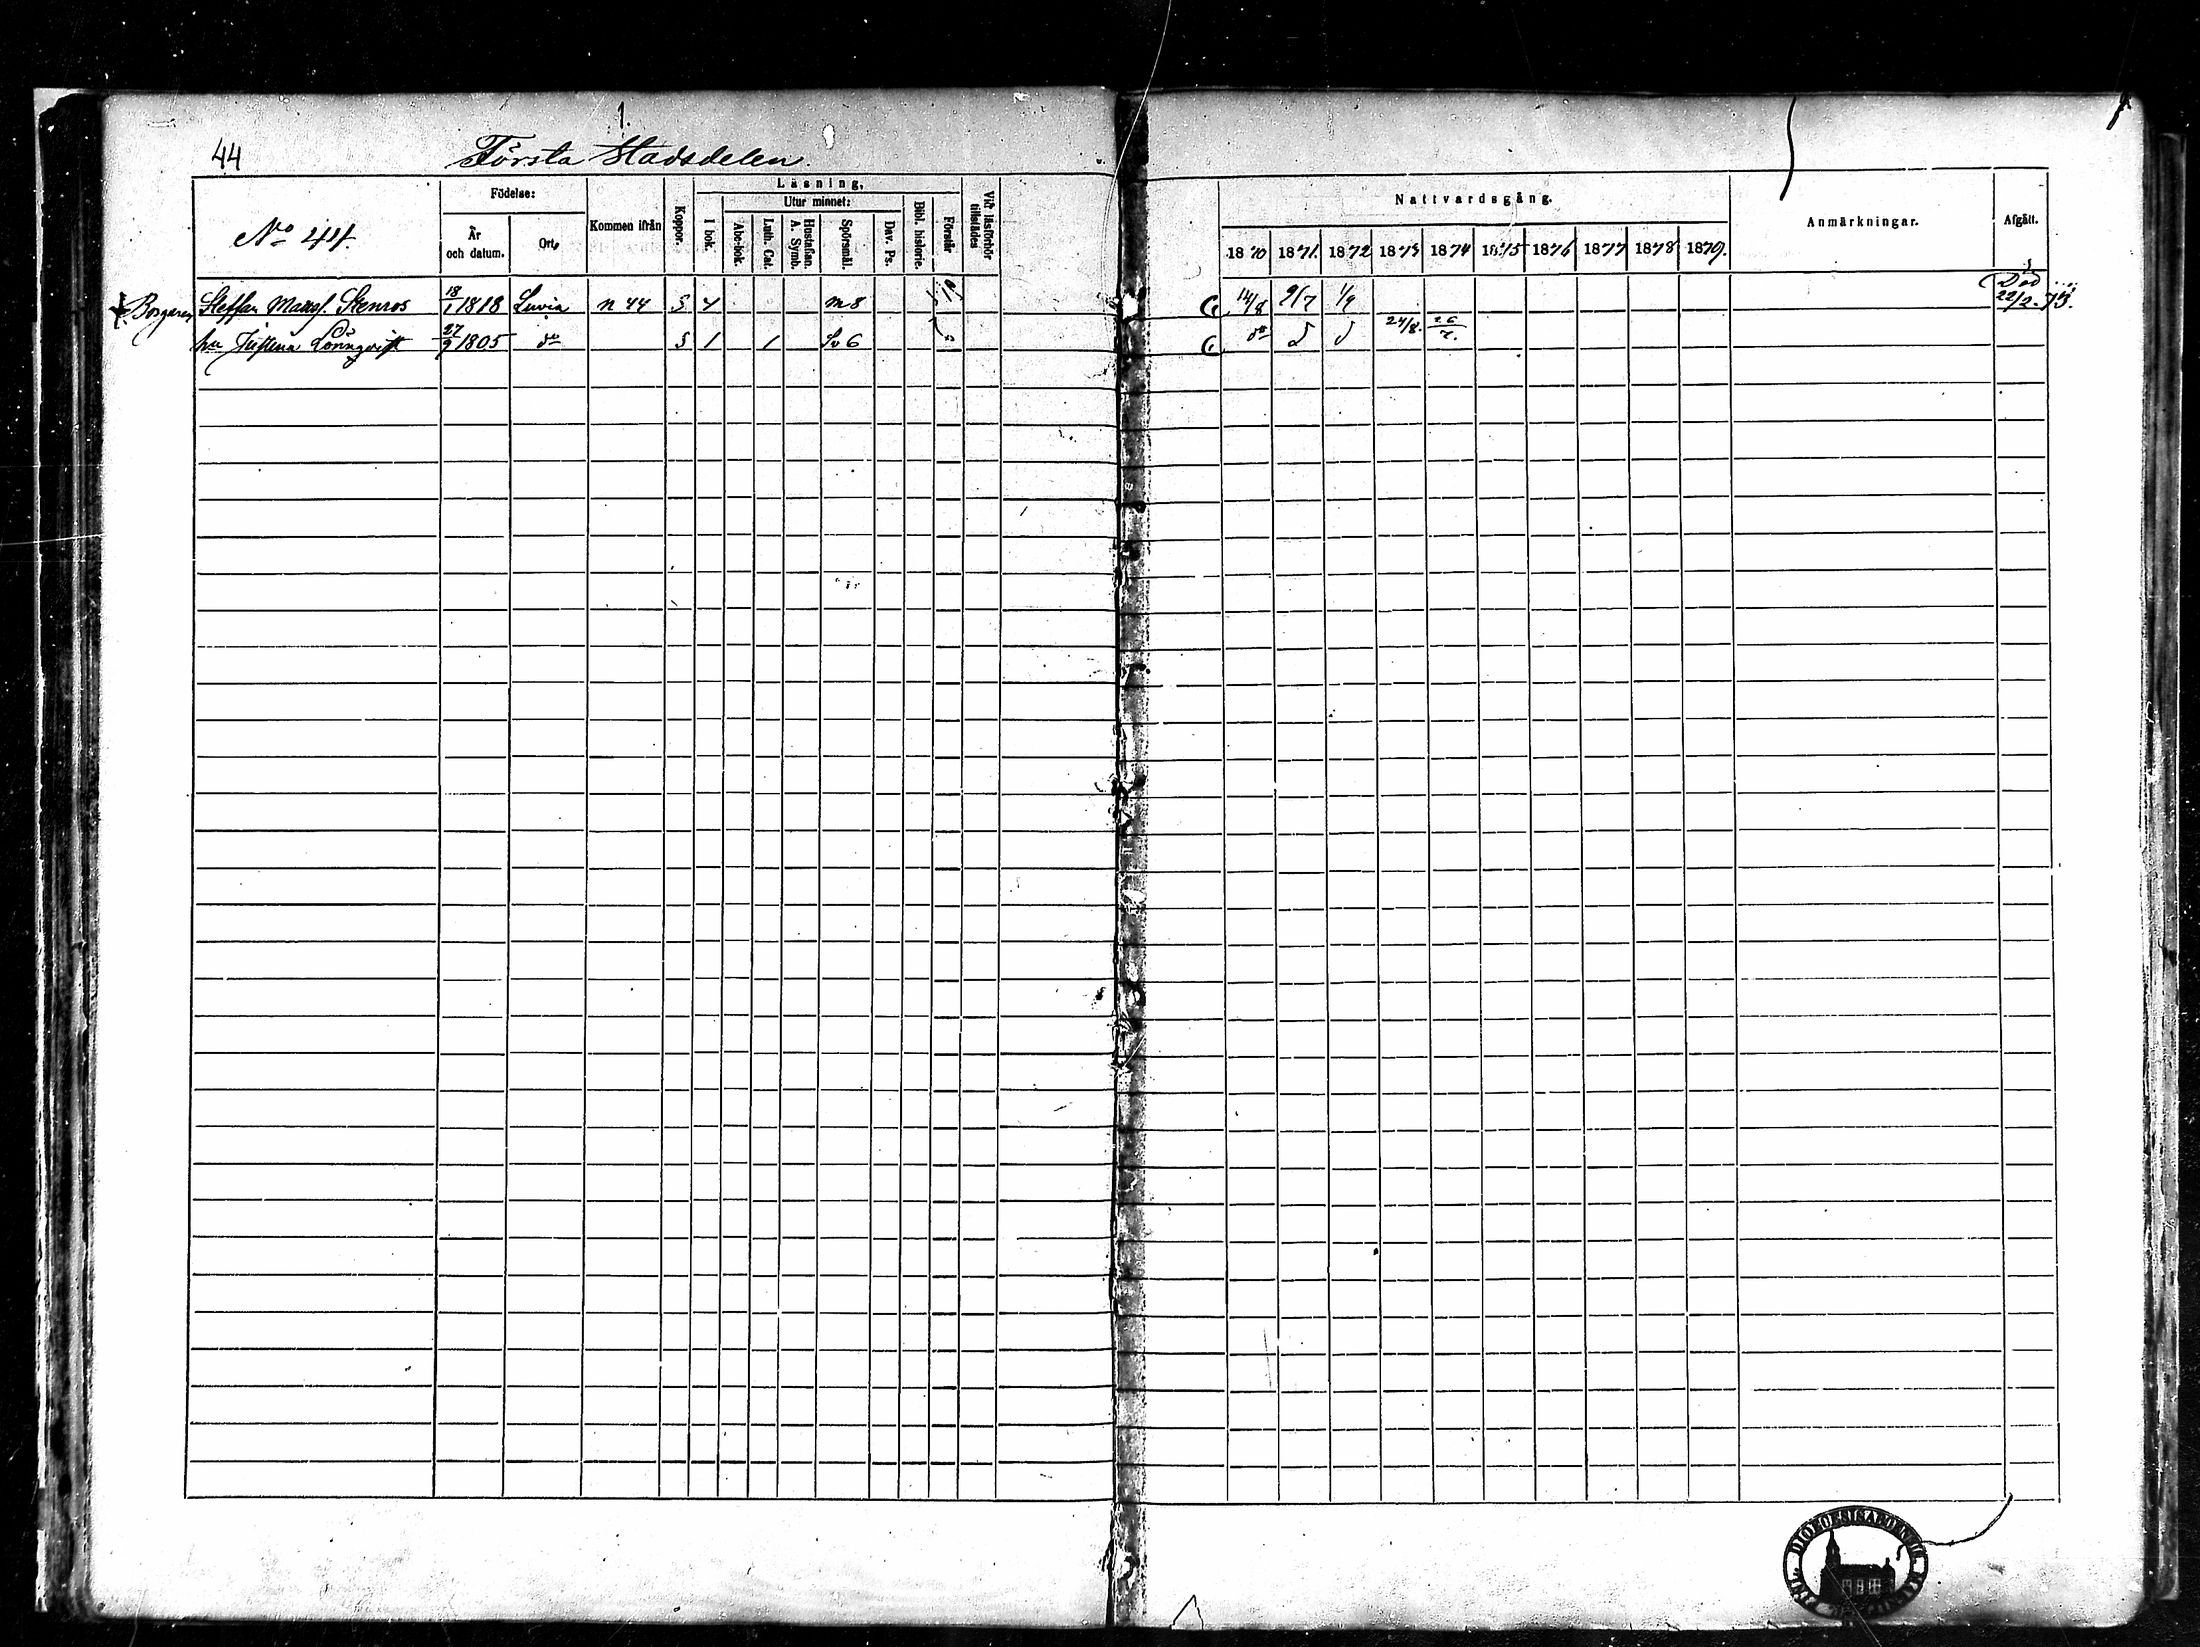 1.
44 Första Stadsdelen
No 44.
Födelse:
År och datum.
Ort.
Kommen ifrån
Koppor.
Läsning,
I bok.
Utur minnet:
Abc-bok.
Luth. Cat.
Hustaflan. A. Symb.
Spörsmål.
Dav. Ps.
Bibl. historie.
Förstår
Vid läsförhör tillstädes
Nattvardsgång.
1870 1871. 1872 1873 1874 1875 1876 1877 1878 1879.
Anmärkningar.
Afgått.
Borgaren Steffan Matts. Stenros 18/1 1818 Luvia n 44 S 4 m 8 14/8 9/7 1/9 Död 22/2 75.
hu Justina Lönnqvist 27/9 1805 do S 1 1 Sv 6 do 24/8. 26/7.